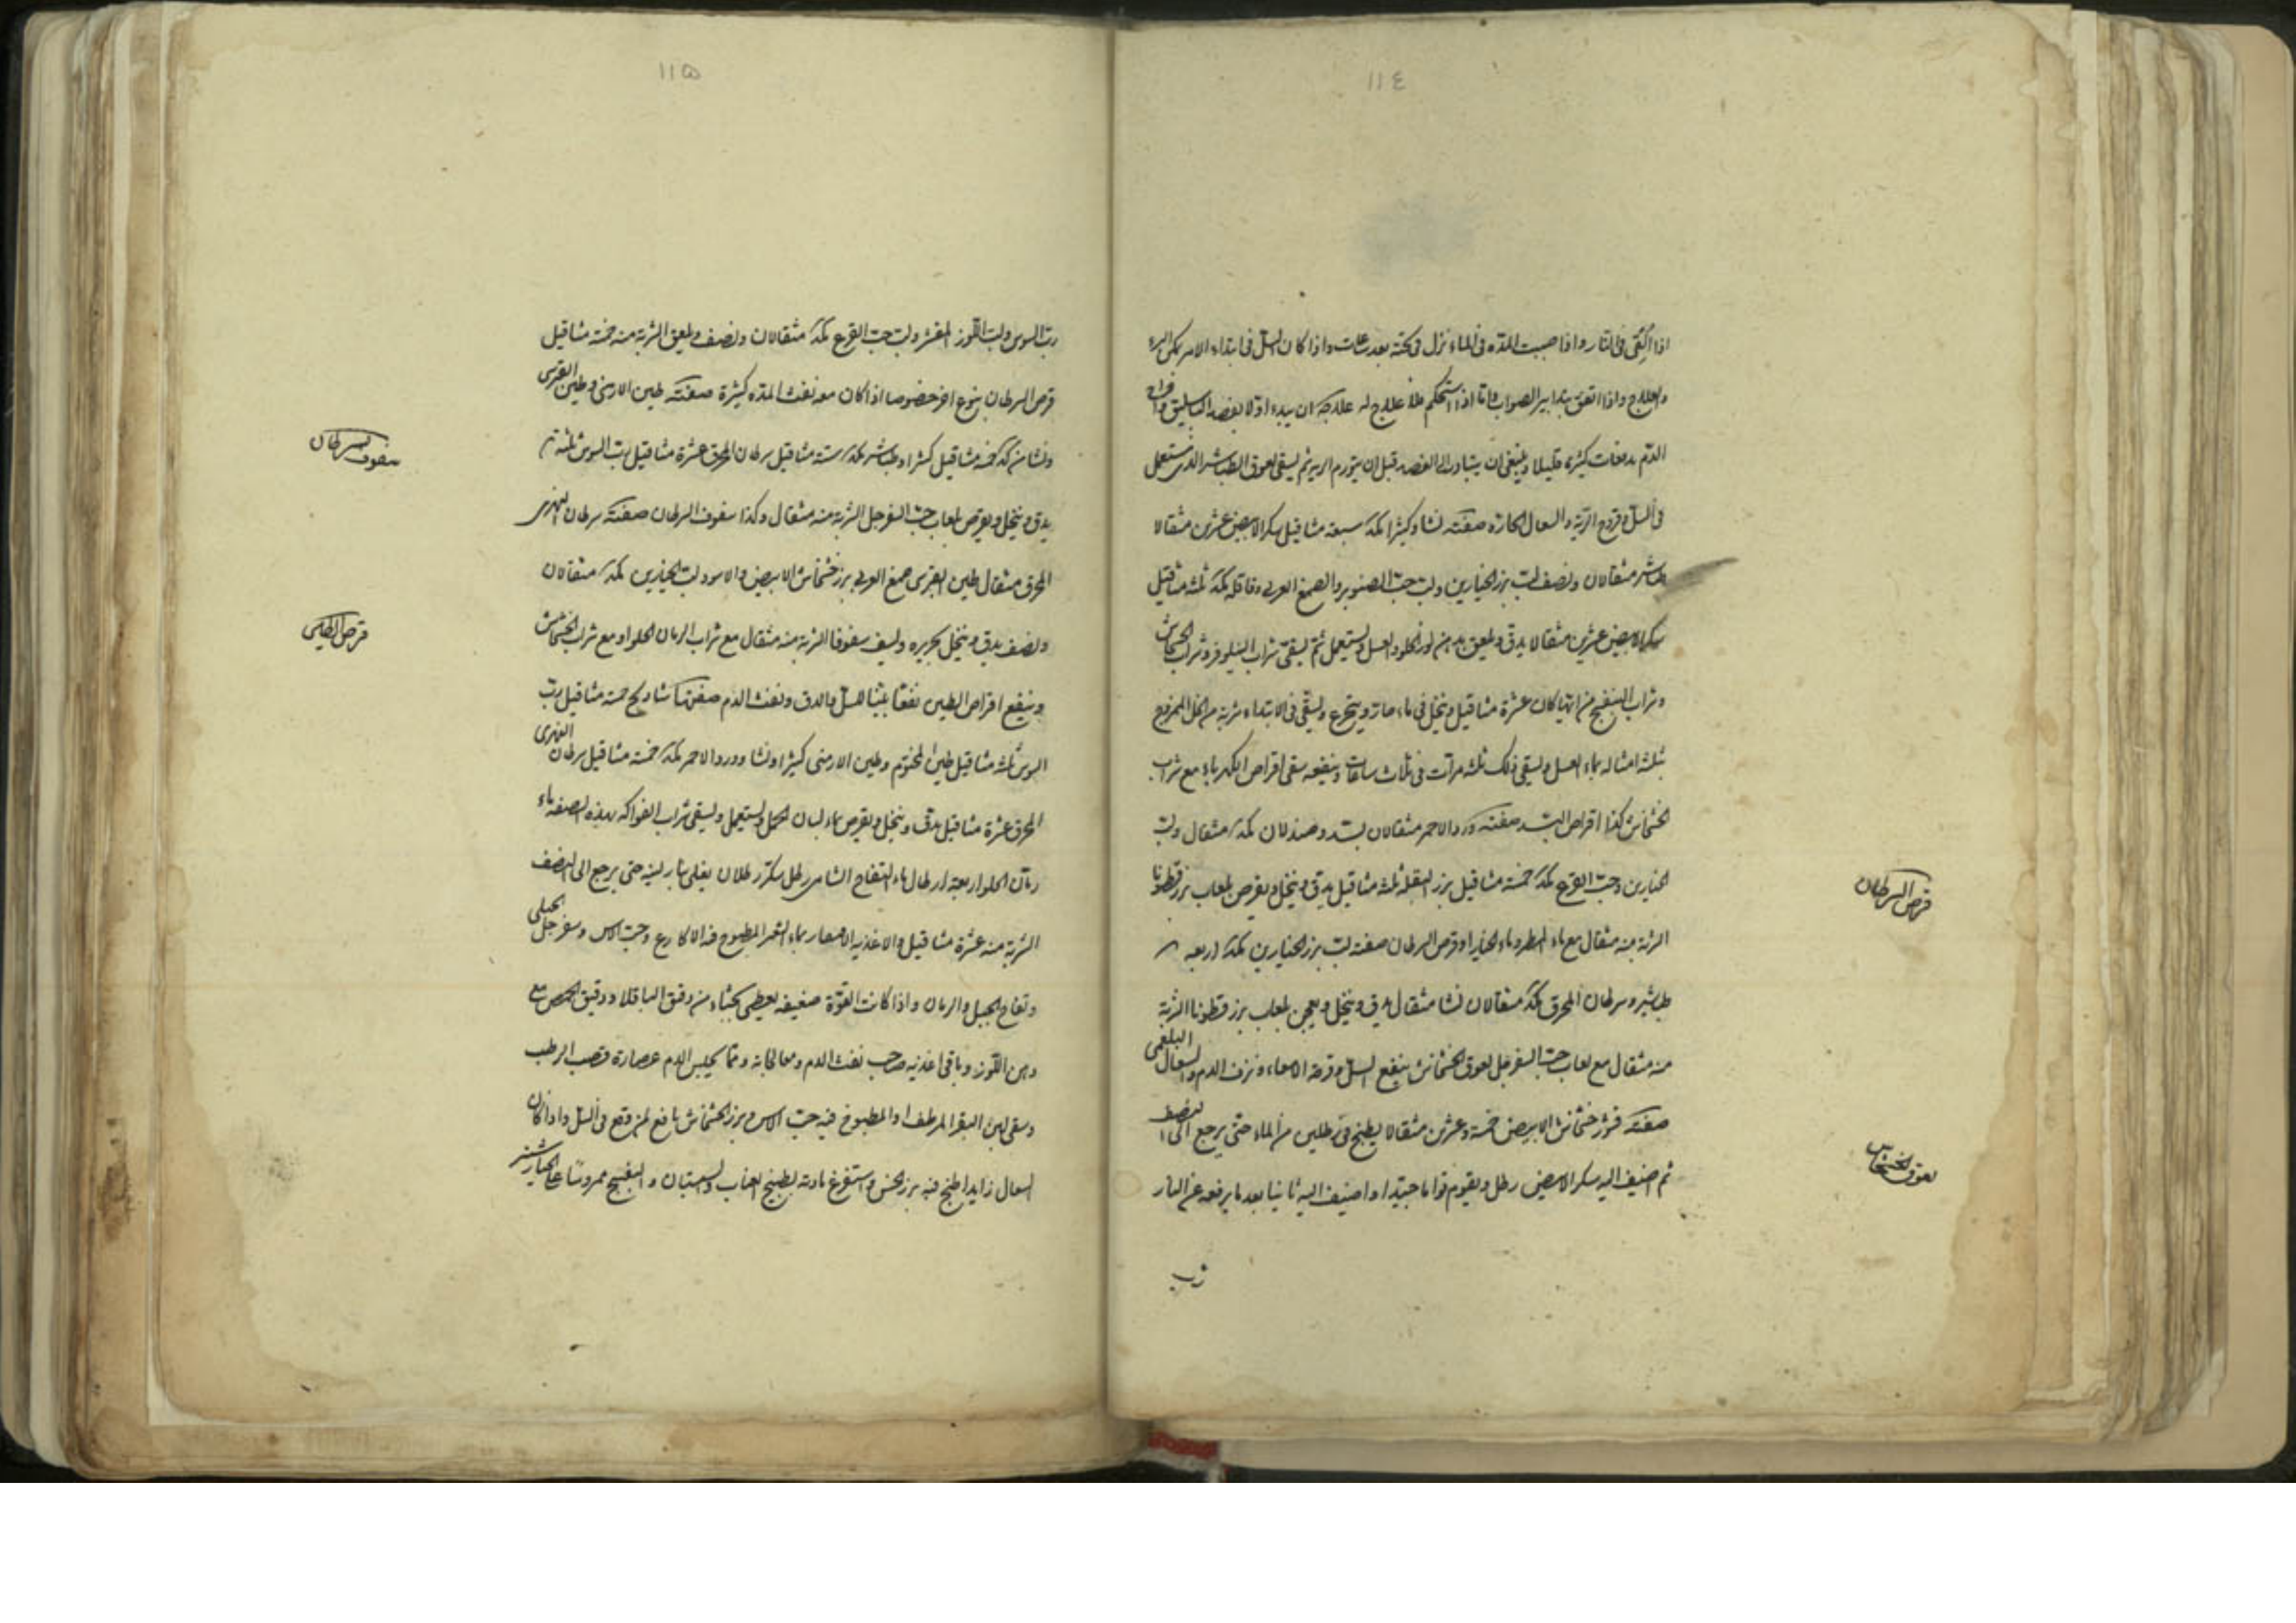 ١١٤
اذا القى فى النار واذا صببت المده فى الماء نزل فى تحته بعد ساعات واذا كان السل فى ابتداء الامر يمكن البرء
والعلاج واذا اتفق بتدابير الصواب واما اذا استحكم فلا علاج له علاجه ان يبدء اولا بفصد الباسليق واخراج
الدم بدفعات كثيرة قليلا وينبغى ان يتبادر الى الفصد قبل ان يتورم الريه ثم يسقى لعوق الطباشير الذى يستعمل
فى السل وقروح الرية والسعال الحارة صفته نشا وكثيرا مكد سبعة مثاقيل سكر الابيض عشرين مثقالا
طباشير مثقالان ونصف لب بزر الخيارين ولب حب الصنوبر والصمغ العربى وفاقله مكد ثلثه مثاقيل
سكر الابيض عشرين مثقالا يدق ويلعق بدهن لوز الحلو والعسل ويستعمل ثم يسقى شراب النيلوفر وشراب الخشخاش
وشراب البنفسج من ايها كان عشرة مثاقيل ويتخل فى ماء حار ويتجرع ويسقى فى الابتداء شربة من الخل الممزوج
بثلثه امثاله بماء العسل ويسقى ذلك ثلثه مرات فى ثلاث ساعات وينفعه سقى اقراص الكهرباء مع شراب
الخشخاش كذا اقراص البسد صفته ورد الاحمر مثقالان بسد وصندلان مكد مثقال ولب
الخيارين وحب القرع مكد خمسة مثاقيل بزر البقلة ثلثه مثاقيل يدق وينخل ويقرص بلعاب بزر قطونا
الشربة منه مثقال مع ماء المطر وماء الخيار او قرص السرطان صفته لب بزر الخيارين مكد اربعه
طباشير وسرطان المحرق مكد مثقالان نشا مثقال يدق وينخل ويعجن بلعاب بزر قطونا الشربة
منه مثقال مع لعاب حب السفرجل لعوق الخشخاش ينفع السل وقرحة الامعاء ونزف الدم والسعال البلغمى
صفته قشر خشخاش الابيض خمسة وعشرين مثقالا يطبخ فى رطلين من الماء حتى يرجع الى النصف
ثم اضيف اليه سكر الابيض رطل ويقوم قواما جيدا واضيف اليه ثانيا بعد ما يرفعه عن النار
رب
قرص السرطان
لعوق الخشخاش
١١٥
رب السوس ولب اللوز المقشر ولب حب القرع مكد مثقالان ونصف ويلعق الشربة منه خمسة مثاقيل
قرص السرطان بنوع اخر خصوصا اذا كان معه نفث المده كثيرة صفته طين الارمنى وطين القبرسى
ونشا من كد خمسة مثاقيل كثيرا وطباشير مكد ستة مثاقيل سرطان المحرق عشرة مثاقيل رب السوس ثلثه
يدق وينخل ويقرص بلعاب حب السفرجل الشربة منه مثقال وكذا سفوف السرطان صفته سرطان النهرى
المحرق مثقال طين القبرسى صمغ العربى بزر خشخاش الابيض والاسود لب الخيارين مكد مثقالان
ونصف يدق وينخل بحريره ويسف سفوفا الشربة منه مثقال مع شراب الرمان الحلو او مع شراب الخشخاش
وينفع اقراص الطين نفعا بينا للسل والدق ونفث الدم صفتها شاديج خمسة مثاقيل رب
السوس ثلثه مثاقيل طين المختوم وطين الارمنى كثيرا ونشا وورد الاحمر مكد خمسة مثاقيل سرطان النهرى
المحرق عشرة مثاقيل يدق وينخل ويقرص بماء لسان الحمل ويستعمل ويسقى شراب الفواكه بهذه الصفة ماء
رمان الحلو اربعة ارطال ماء التفاح الشامى رطل سكر رطلان يغلى بنار لينه حتى يرجع الى النصف
الشربة منه عشرة مثاقيل والاغذية الاحصار بماء الشعير المطبوخ فيه الاكارع وحب الاس وسفرجل الجبلى
وتفاح الجبيل والرمان واذا كانت القوة ضعيفه يعطى بحساء من دقيق الباقلا ودقيق الحمص مع
دهن اللوز وباقى اغذية صاحب نفث الدم ومعالجاته ومما يحبس الدم عصارة قصب الرطب
وسقى لبن البقر المرطف او المطبوخ فيه حب الاس وبزر الخشخاش نافع لمن وقع فى السل واذا كان
السعال زايدا طبخ فيه بزر الخس واستفرغ مادته بطبيخ العناب والسپستان والبنفسج ممروسا على الخيارشنبر
سفوف سرطان
قرص الطين